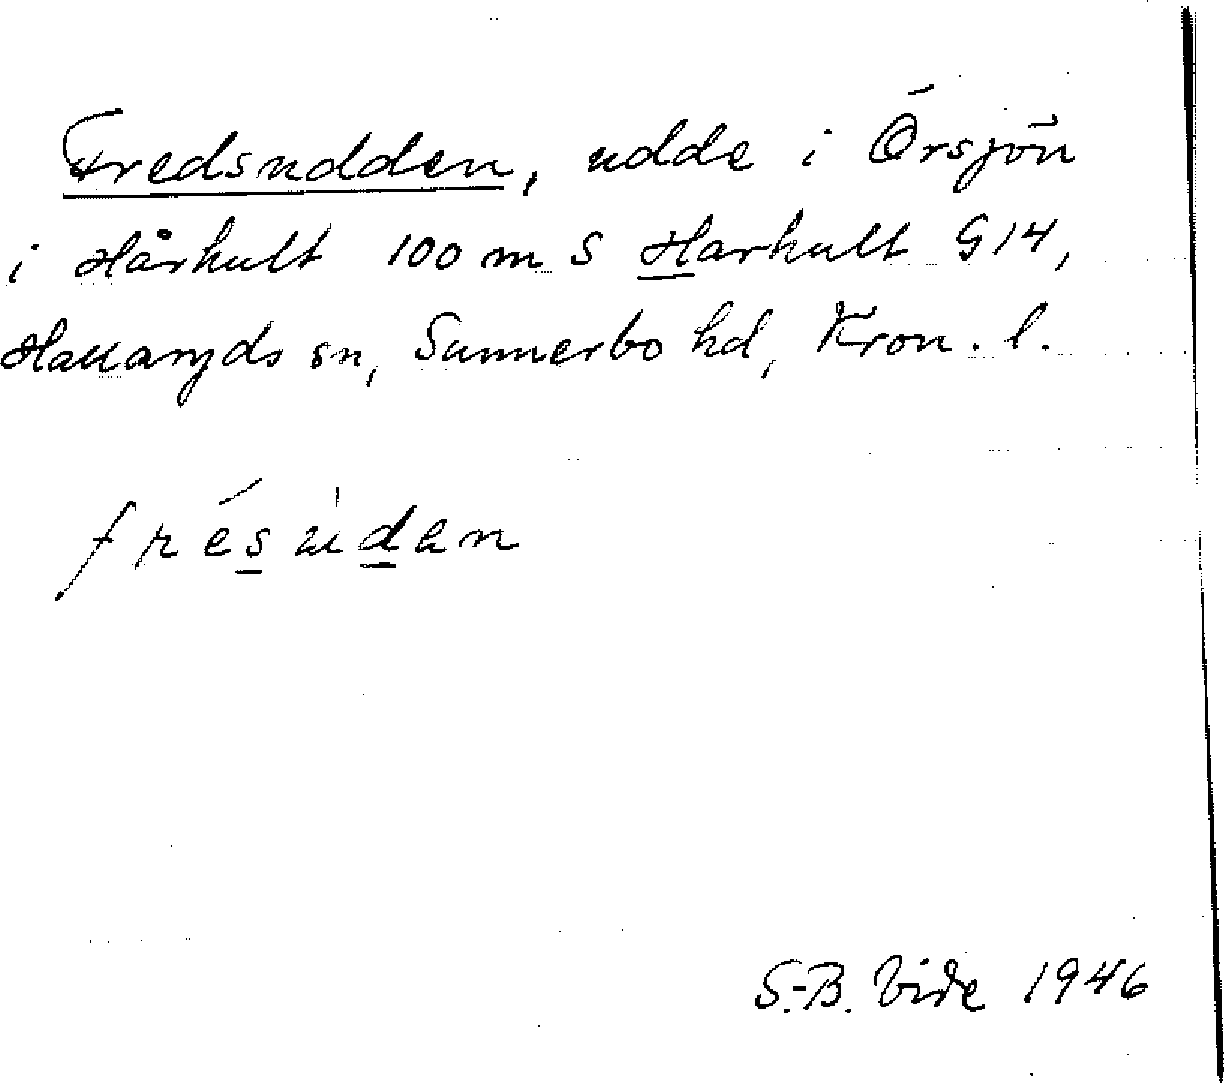 Fredsudden, udde i Örsjön
i Hårhult 100 m S Harhult G14,
Hallaryds sn, Sunnerbo hd, Kron. l.
frésùdan
S.-B. Vide 1946